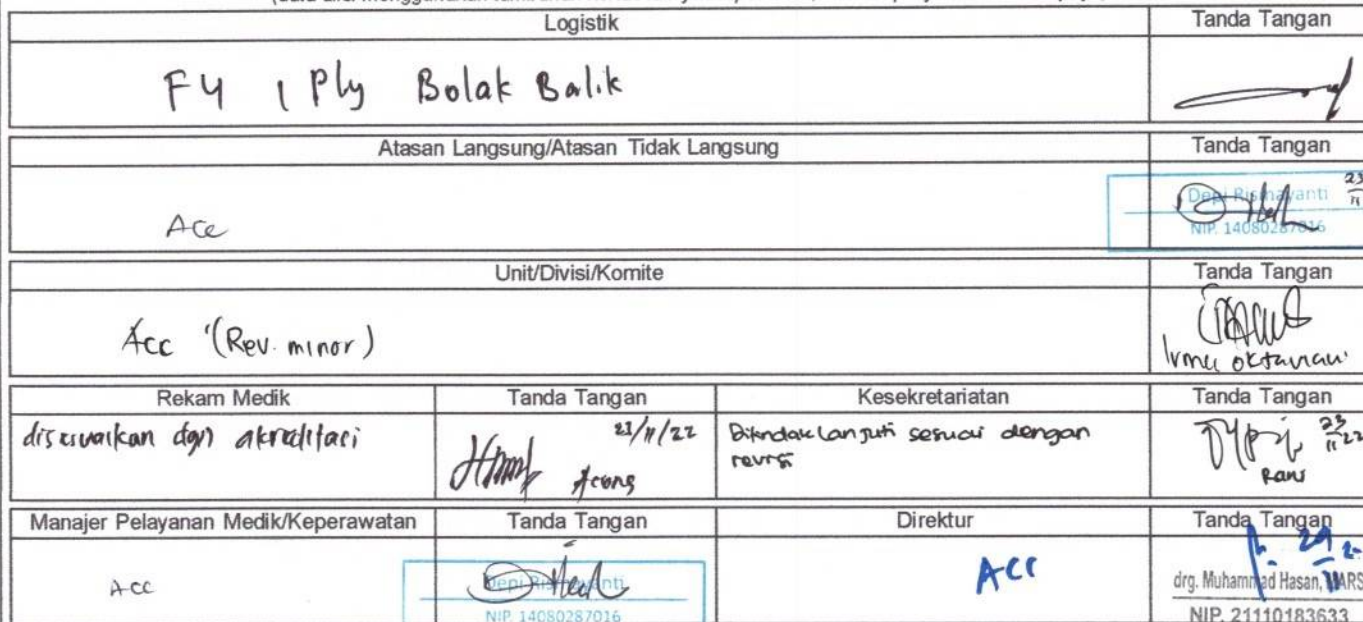 Logistik Tanda Tangan
F4 1 Ply Bolak Balik
Atasan Langsung/Atasan Tidak Langsung Tanda Tangan
Acc
Depi Rismayanti 23
11
NIP. 14080287016
Unit/Divisi/Komite Tanda Tangan
Acc (Rev. minor)
Rekam Medik Tanda Tangan Kesekretariatan Tanda Tangan
disesuaikan dgn akreditasi 23/11/22 Ditindaklanjuti sesuai dengan revisi 23
11 22
Rani
Manajer Pelayanan Medik/Keperawatan Tanda Tangan Direktur Tanda Tangan
Acc Depi Rismayanti Acc
NIP. 14080287016
drg. Muhammad Hasan, MARS
NIP. 21110183633